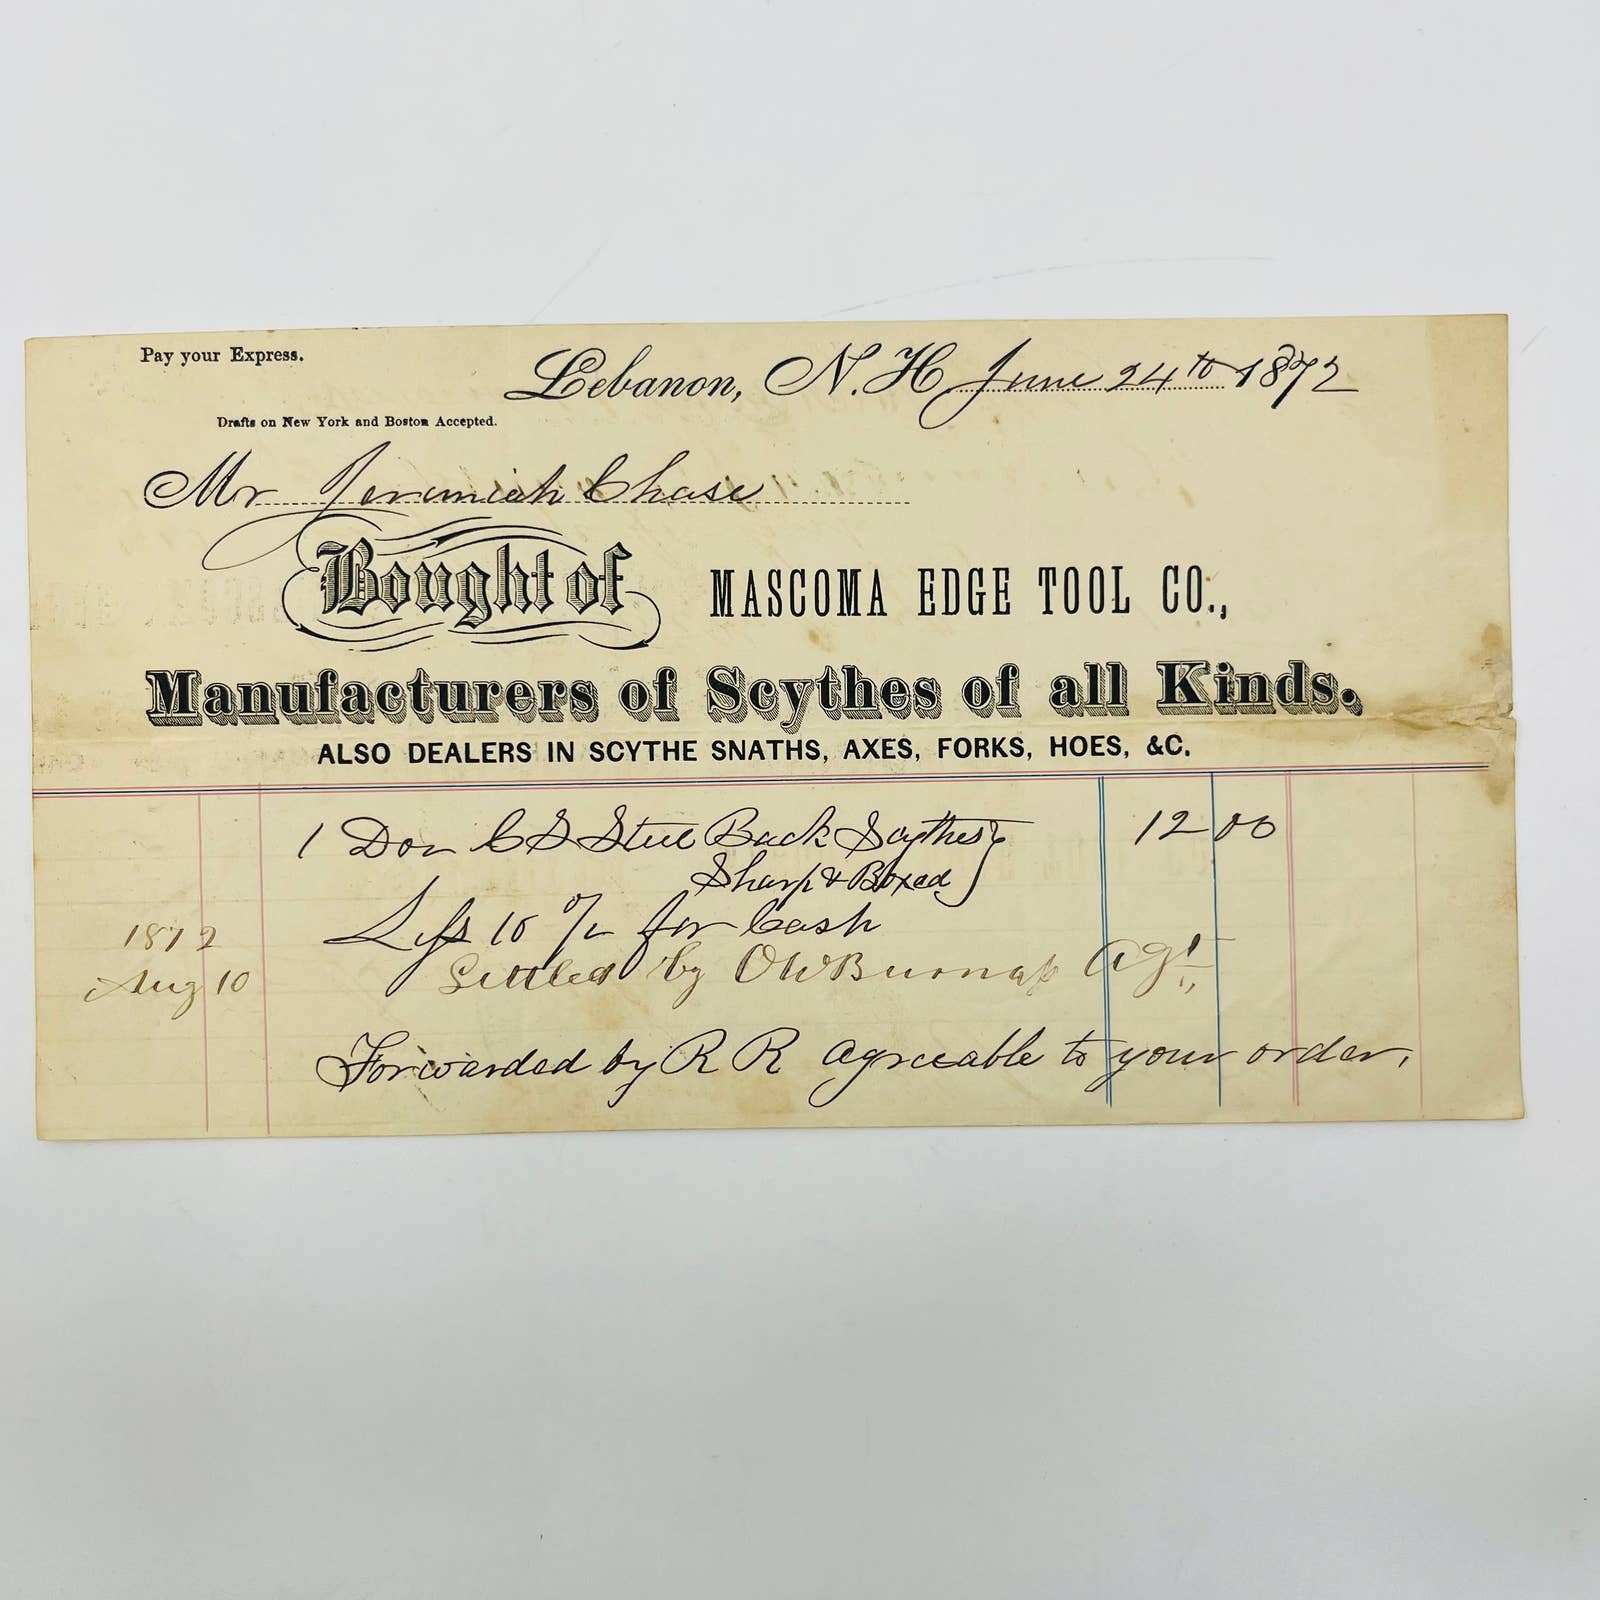 Pay your Express.
Lebanon, N. H. June 24th 1872
Drafts on New York and Boston Accepted.
Mr Jeremiah Chase
Bought of MASCOMA EDGE TOOL CO.,
Manufacturers of Scythes of all Kinds.
ALSO DEALERS IN SCYTHE SNATHS, AXES, FORKS, HOES, &C.
1 Doz C S Steel Back Scythes 12 00
Sharp & Boxed
Less 10 % for Cash
1872
Aug 10 Settled by O W Burnap Agt.,
Forwarded by R R agreeable to your order,